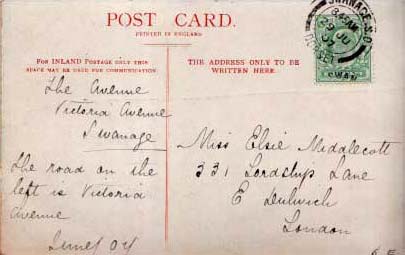 POST CARD.
PRINTED IN ENGLAND
FOR INLAND POSTAGE ONLY THIS
SPACE MAY BE USED FOR COMMUNICATION.
THE ADDRESS ONLY TO BE
WRITTEN HERE.
The Avenue
Victoria Avenue
Swanage
The road on the
left is Victoria
Avenue
June 07
Miss Elsie Medalecott
331 Lordship Lane
E Dulwich
London
SWANAGE